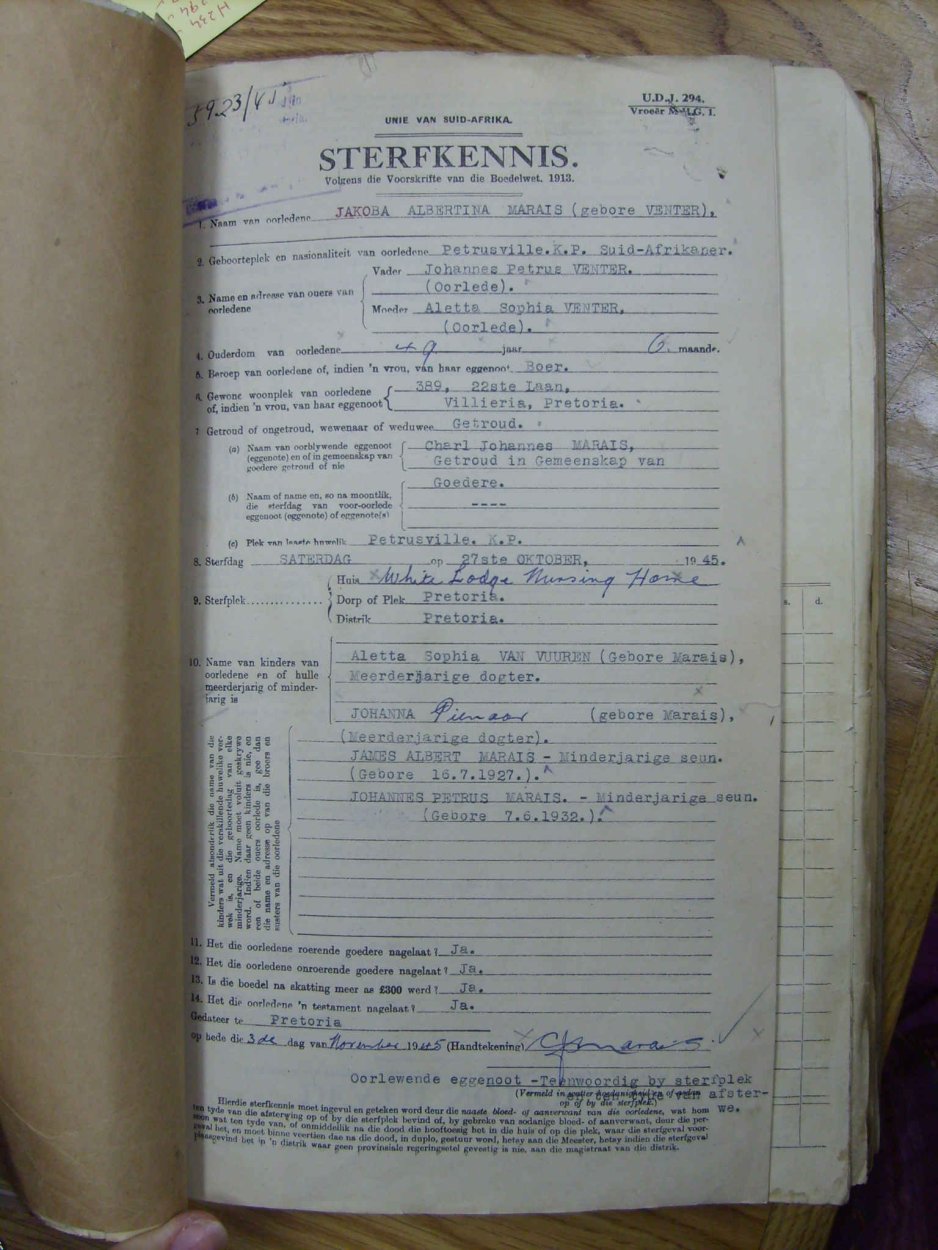 H234
294
3923/45
U.D.J. 294.
Vroeër
UNIE VAN SUID-AFRIKA.
STERFKENNIS.
Volgens die Voorskrifte van die Boedelwet, 1913.
1. Naam van oorledene JAKOBA ALBERTINA MARAIS (gebore VENTER),
2. Geboorteplek en nasionaliteit van oorledene Petrusville.K.P. Suid-Afrikaner.
3. Name en adresse van ouers van oorledene
Vader Johannes Petrus VENTER.
(Oorlede).
Moeder Aletta Sophia VENTER,
(Oorlede).
4. Ouderdom van oorledene 49 jaar 6. maande.
5. Beroep van oorledene of, indien 'n vrou, van haar eggenoot Boer.
6. Gewone woonplek van oorledene of, indien 'n vrou, van haar eggenoot
389, 22ste Laan,
Villieria, Pretoria.
7 Getroud of ongetroud, wewenaar of weduwee Getroud.
(a) Naam van oorblywende eggenoot (eggenote) en of in gemeenskap van goedere getroud of nie
Charl Johannes MARAIS,
Getroud in Gemeenskap van
Goedere.
(b) Naam of name en, so na moontlik, die sterfdag van voor-oorlede eggenoot (eggenote) of eggenote(s)
----
(c) Plek van laaste huwelik Petrusville. K.P.
8. Sterfdag SATERDAG op 27ste OKTOBER, 1945.
9. Sterfplek
Huis White Lodge Nursing Home
Dorp of Plek Pretoria.
Distrik Pretoria.
10. Name van kinders van oorledene en of hulle meerderjarig of minderjarig is
Aletta Sophia VAN VUUREN (Gebore Marais),
Meerderjarige dogter.
JOHANNA Pienaar (gebore Marais),
(Meerderjarige dogter).
JAMES ALBERT MARAIS - Minderjarige seun.
(Gebore 16.7.1927.).
JOHANNES PETRUS MARAIS. - Minderjarige seun.
(Gebore 7.6.1932.).
Vermeld afsonderlik die name van die
kinders wat uit die verskillende huwelike verwek
is, en die geboortedag van elke
minderjarige. Name moet voluit geskrywe
word. Indien daar geen kinders is nie, en
een of beide ouers oorlede is, gee dan
die name en adresse op van die broers en
susters van die oorledene
11. Het die oorledene roerende goedere nagelaat? Ja.
12. Het die oorledene onroerende goedere nagelaat? Ja.
13. Is die boedel na skatting meer as £300 werd? Ja.
14. Het die oorledene 'n testament nagelaat? Ja.
Gedateer te Pretoria
op hede die 3de dag van November 1945 (Handtekening) CJ Marais
Oorlewende eggenoot - Teenwoordig by sterfplek
(Vermeld in watter hoedanigheid en of ander op of by die sterfplek.)
op ten tyde van afsterwe.
Hierdie sterfkennis moet ingevul en geteken word deur die naaste bloed- of aanverwant van die oorledene, wat hom
ten tyde van die afsterwing op of by die sterfplek bevind of, by gebreke van sodanige bloed- of aanverwant, deur die persoon
wat ten tyde van, of onmiddellik na die dood die hooftoesig het in die huis of op die plek, waar die sterfgeval voorgeval
het, en moet binne veertien dae na die dood, in duplo, gestuur word, hetsy aan die Meester, hetsy indien die sterfgeval
plaasgevind het in 'n distrik waar geen provinsiale regeringsetel gevestig is nie, aan die magistraat van die distrik.
s. d.